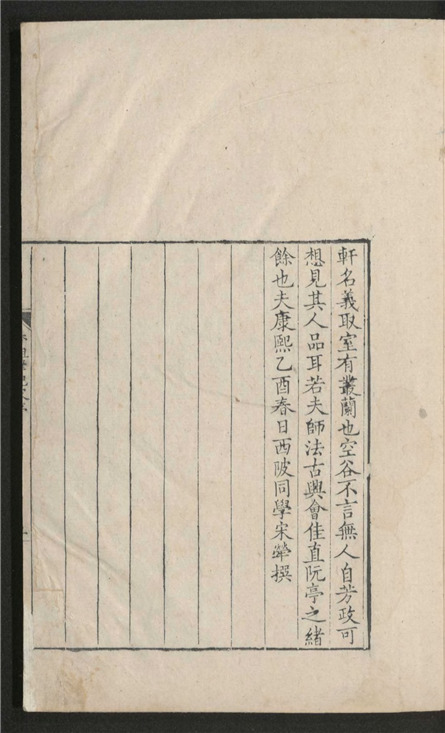 軒名義取室有叢蘭也空谷不言無人自芳政可
想見其人品耳若夫師法古興會佳直阮亭之緒
餘也夫康熙乙酉春日西陂同學宋犖撰